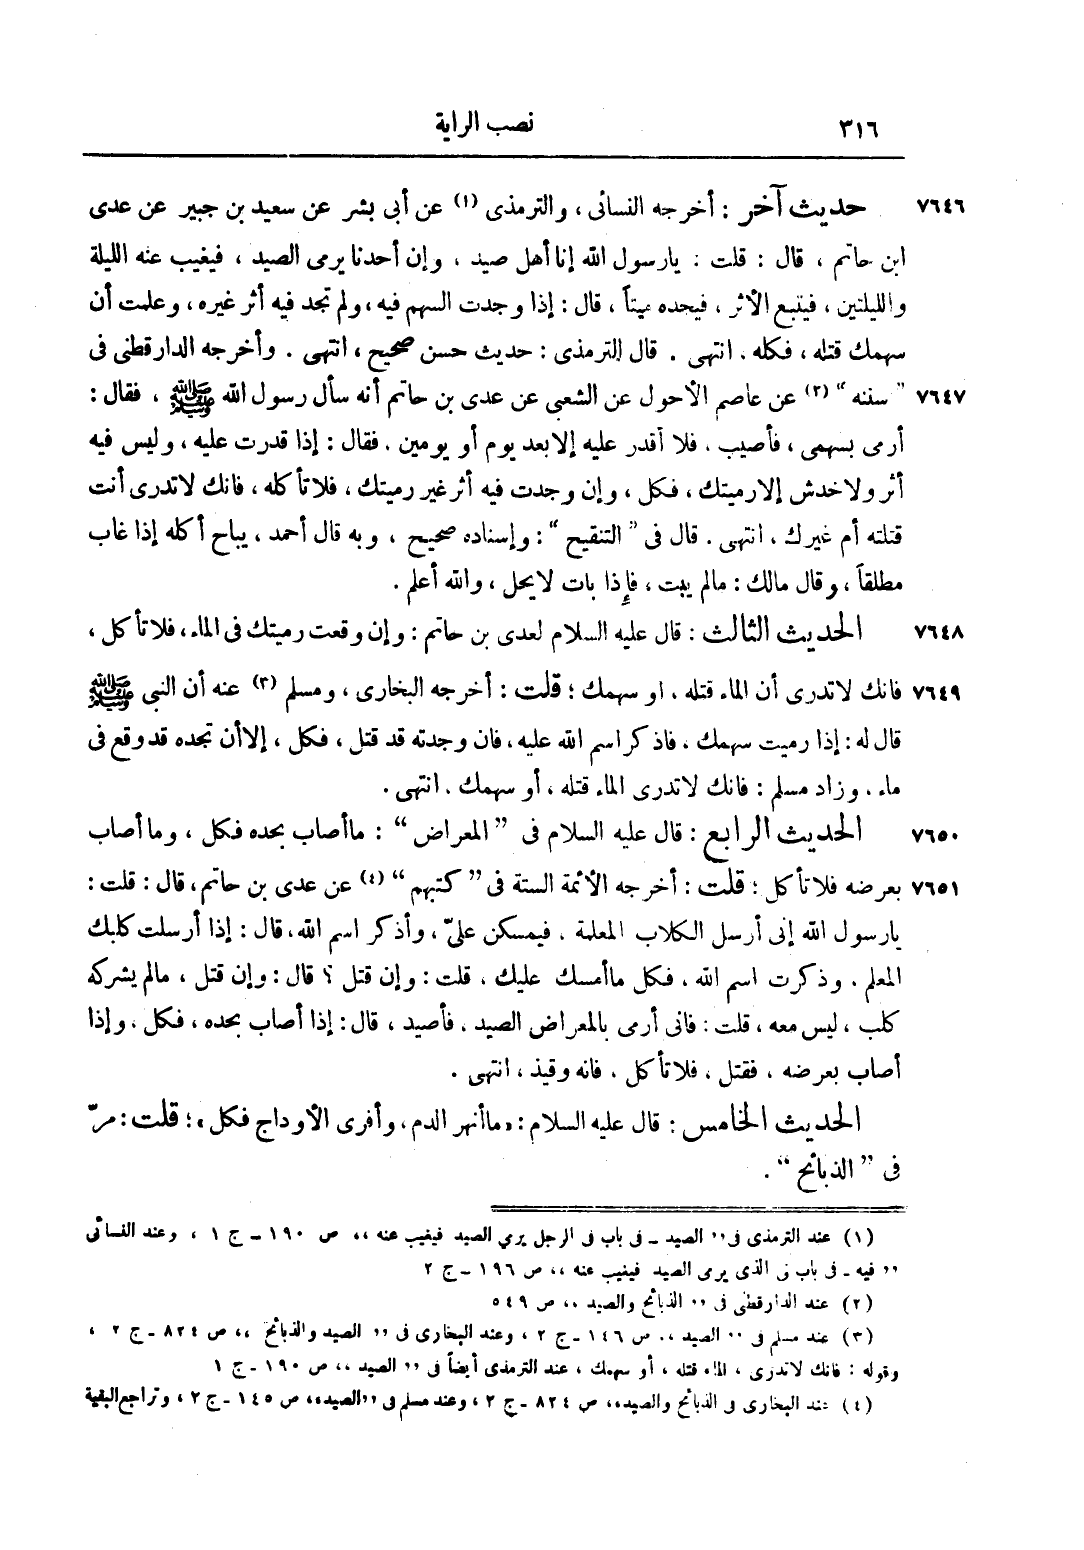 ٣١٦ نصب الراية
٧٦٤٦ حديث آخر : أخرجه النسائى ، والترمذى (١) عن أبى بشر عن سعيد بن جبير عن عدى
ابن حاتم ، قال : قلت : يارسول الله إنا أهل صيد ، وإن أحدنا يرمى الصيد ، فيغيب عنه الليلة
والليلتين ، فيتبع الأثر ، فيجده ميتاً ، قال : إذا وجدت السهم فيه ، ولم تجد فيه أثر غيره ، وعلمت أن
سهمك قتله ، فكله . انتهى . قال الترمذى : حديث حسن صحيح ، انتهى . وأخرجه الدارقطنى فى
٧٦٤٧ " سننه " (٢) عن عاصم الأحول عن الشعبى عن عدى بن حاتم أنه سأل رسول الله ﷺ ، فقال :
أرمى بسهمى ، فأصيب . فلا أقدر عليه إلا بعد يوم أو يومين . فقال : إذا قدرت عليه ، وليس فيه
أثر ولا خدش إلا رميتك ، فكل ، وإن وجدت فيه أثر غير رميتك ، فلا تأكله ، فانك لاتدرى أنت
قتلته أم غيرك ، انتهى . قال فى " التنقيح " : وإسناده صحيح ، وبه قال أحمد ، يباح أكله إذا غاب
مطلقاً ، وقال مالك : مالم يبت ، فإذا بات لايحل ، والله أعلم .
٧٦٤٨ الحديث الثالث : قال عليه السلام لعدى بن حاتم : وإن وقعت رميتك فى الماء ، فلا تأكل ،
٧٦٤٩ فانك لاتدرى أن الماء قتله ، او سهمك ؛ قلت : أخرجه البخارى ، ومسلم (٣) عنه أن النبى ﷺ
قال له : إذا رميت سهمك ، فاذكر اسم الله عليه ، فان وجدته قد قتل ، فكل ، إلا أن تجده قد وقع فى
ماء . وزاد مسلم : فانك لاتدرى الماء قتله ، أو سهمك . انتهى .
٧٦٥٠ الحديث الرابع : قال عليه السلام فى " المعراض " : ماأصاب بحده فكل ، وماأصاب
٧٦٥١ بعرضه فلا تأكل ؛ قلت : أخرجه الأئمة الستة فى " كتبهم " (٤) عن عدى بن حاتم ، قال : قلت :
يارسول الله إنى أرسل الكلاب المعلمة ، فيمسكن علىّ ، وأذكر اسم الله ، قال : إذا أرسلت كلبك
المعلم . وذكرت اسم الله ، فكل ماأمسك عليك . قلت : وإن قتل ؟ قال : وإن قتل ، مالم يشركه
كلب ، ليس معه ، قلت : فانى أرمى بالمعراض الصيد . فأصيد ، قال : إذا أصاب بحده ، فكل . وإذا
أصاب بعرضه ، فقتل ، فلا تأكل . فانه وقيذ ، انتهى .
الحديث الخامس : قال عليه السلام : «ماأنهر الدم ، وأفرى الأوداج فكل» ؛ قلت : مرّ
فى " الذبائح " .
(١) عند الترمذى فى ,, الصيد ـ فى باب فى الرجل يرمي الصيد فيغيب عنه ,, ص ١٩٠ ـ ج ١ ، وعند النسائى
,, فيه ـ فى باب فى الذى يرمى الصيد فيغيب عنه ,, ص ١٩٦ ـ ج ٢
(٢) عند الدارقطنى فى ,, الذبائح والصيد ,, ص ٥٤٩
(٣) عند مسلم فى ,, الصيد ,, ص ١٤٦ ـ ج ٢ ، وعند البخارى فى ,, الصيد والذبائح ,, ص ٨٢٤ ـ ج ٢ ،
وقوله : فانك لاتدرى ، الماء قتله ، أو سهمك ، عند الترمذى أيضاً فى ,, الصيد ,, ص ١٩٠ ـ ج ١
(٤) عند البخارى فى الذبائح والصيد,, ص ٨٢٤ ـ ج ٢ ، وعند مسلم فى ,,الصيد,, ص ١٤٥ ـ ج ٢ ، وتراجع البقية